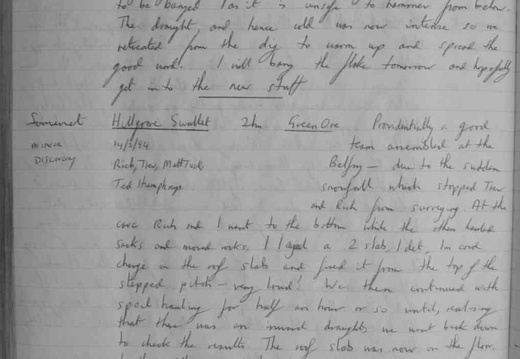 to be banged as it is unsafe to hammer from below.
The draught and hence cold was now intense so we
retreated from the dig to warm up and spread the
good word. I will bang the flake tomorrow and hopefully
get into the new stuff
Somerset Hillgrove Swallet 2hr Green Ore Providentially a good
MINOR 14/2/94 team assembled at the
DISCOVERY Rich, Trev, Matt Tuck, Belfry — due to the sudden
Ted Humphreys snowfall which stopped Trev
and Rich from surveying. At the
cave Rich and I went to the bottom while the others hauled
sacks and moved rocks. I 2 slab, 1 det. cord
charge on the roof slab and fired it from the top of the
stepped pitch - very loud! We then continued with
spoil hauling for half an hour or so until, realising
that there was an inward draught we went back down
to check the results. The roof slab was now on the floor.